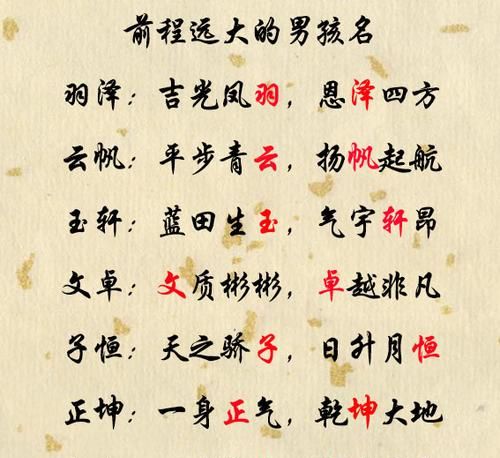 前程远大的男孩名
羽泽：吉光凤羽，恩泽四方
云帆：平步青云，扬帆起航
玉轩：蓝田生玉，气宇轩昂
文卓：文质彬彬，卓越非凡
子恒：天之骄子，日升月恒
正坤：一身正气，乾坤大地